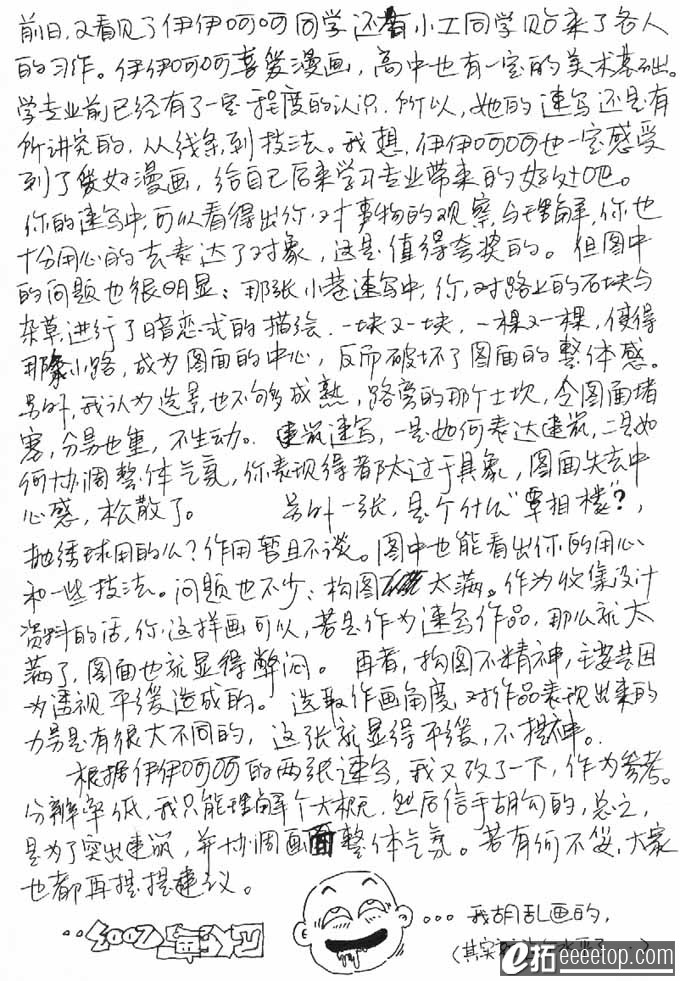 前日,又看见了伊伊呵呵同学还有小工同学贴来了各人
的习作。伊伊呵呵喜爱漫画,高中也有一定的美术基础。
学专业前已经有了一定程度的认识.所以,她的速写还是有
所讲究的,从线条到技法。我想,伊伊呵呵也一定感受
到了爱好漫画,给自己后来学习专业带来的好处吧。
你的速写中,可以看得出你对事物的观察,与理解,你也
十分用心的去表达了对象,这是值得夸奖的。但图中
的问题也很明显:那张小巷速写中,你对路上的石块与
杂草进行了暗恋式的描绘.一块又一块,一棵又一棵,使得
那条小路,成为图面的中心,反而破坏了图面的整体感。
另外,我认为选景也不够成熟,路旁的那个土坎,令图面堵
塞,分易也重,不生动。建筑速写,一是如何表达建筑,二是如
何协调整体气氛,你表现得都太过于具象,图面失去中
心感,松散了。 另外一张,是个什么"覃相楼"?,
抛绣球用的么?作用暂且不谈。图中也能看出你的用心
和一些技法。问题也不少:构图 太满。作为收集设计
资料的话,你这样画可以,若是作为速写作品,那么就太
满了,图面也就显得憋闷。再者,构图不精神,主要是因
为透视平缓造成的。选取作画角度,对作品表现出来的
力另是有很大不同的,这张就显得平缓,不提神。
根据伊伊呵呵的两张速写,我又改了一下,作为参考。
分辨率低,我只能理解个大概,然后信手胡勾的,总之,
是为了突出建筑,并协调画面整体气氛。若有何不妥,大家
也都再提提建议。
...我胡乱画的,
(其实
e拓 eeeetop.com